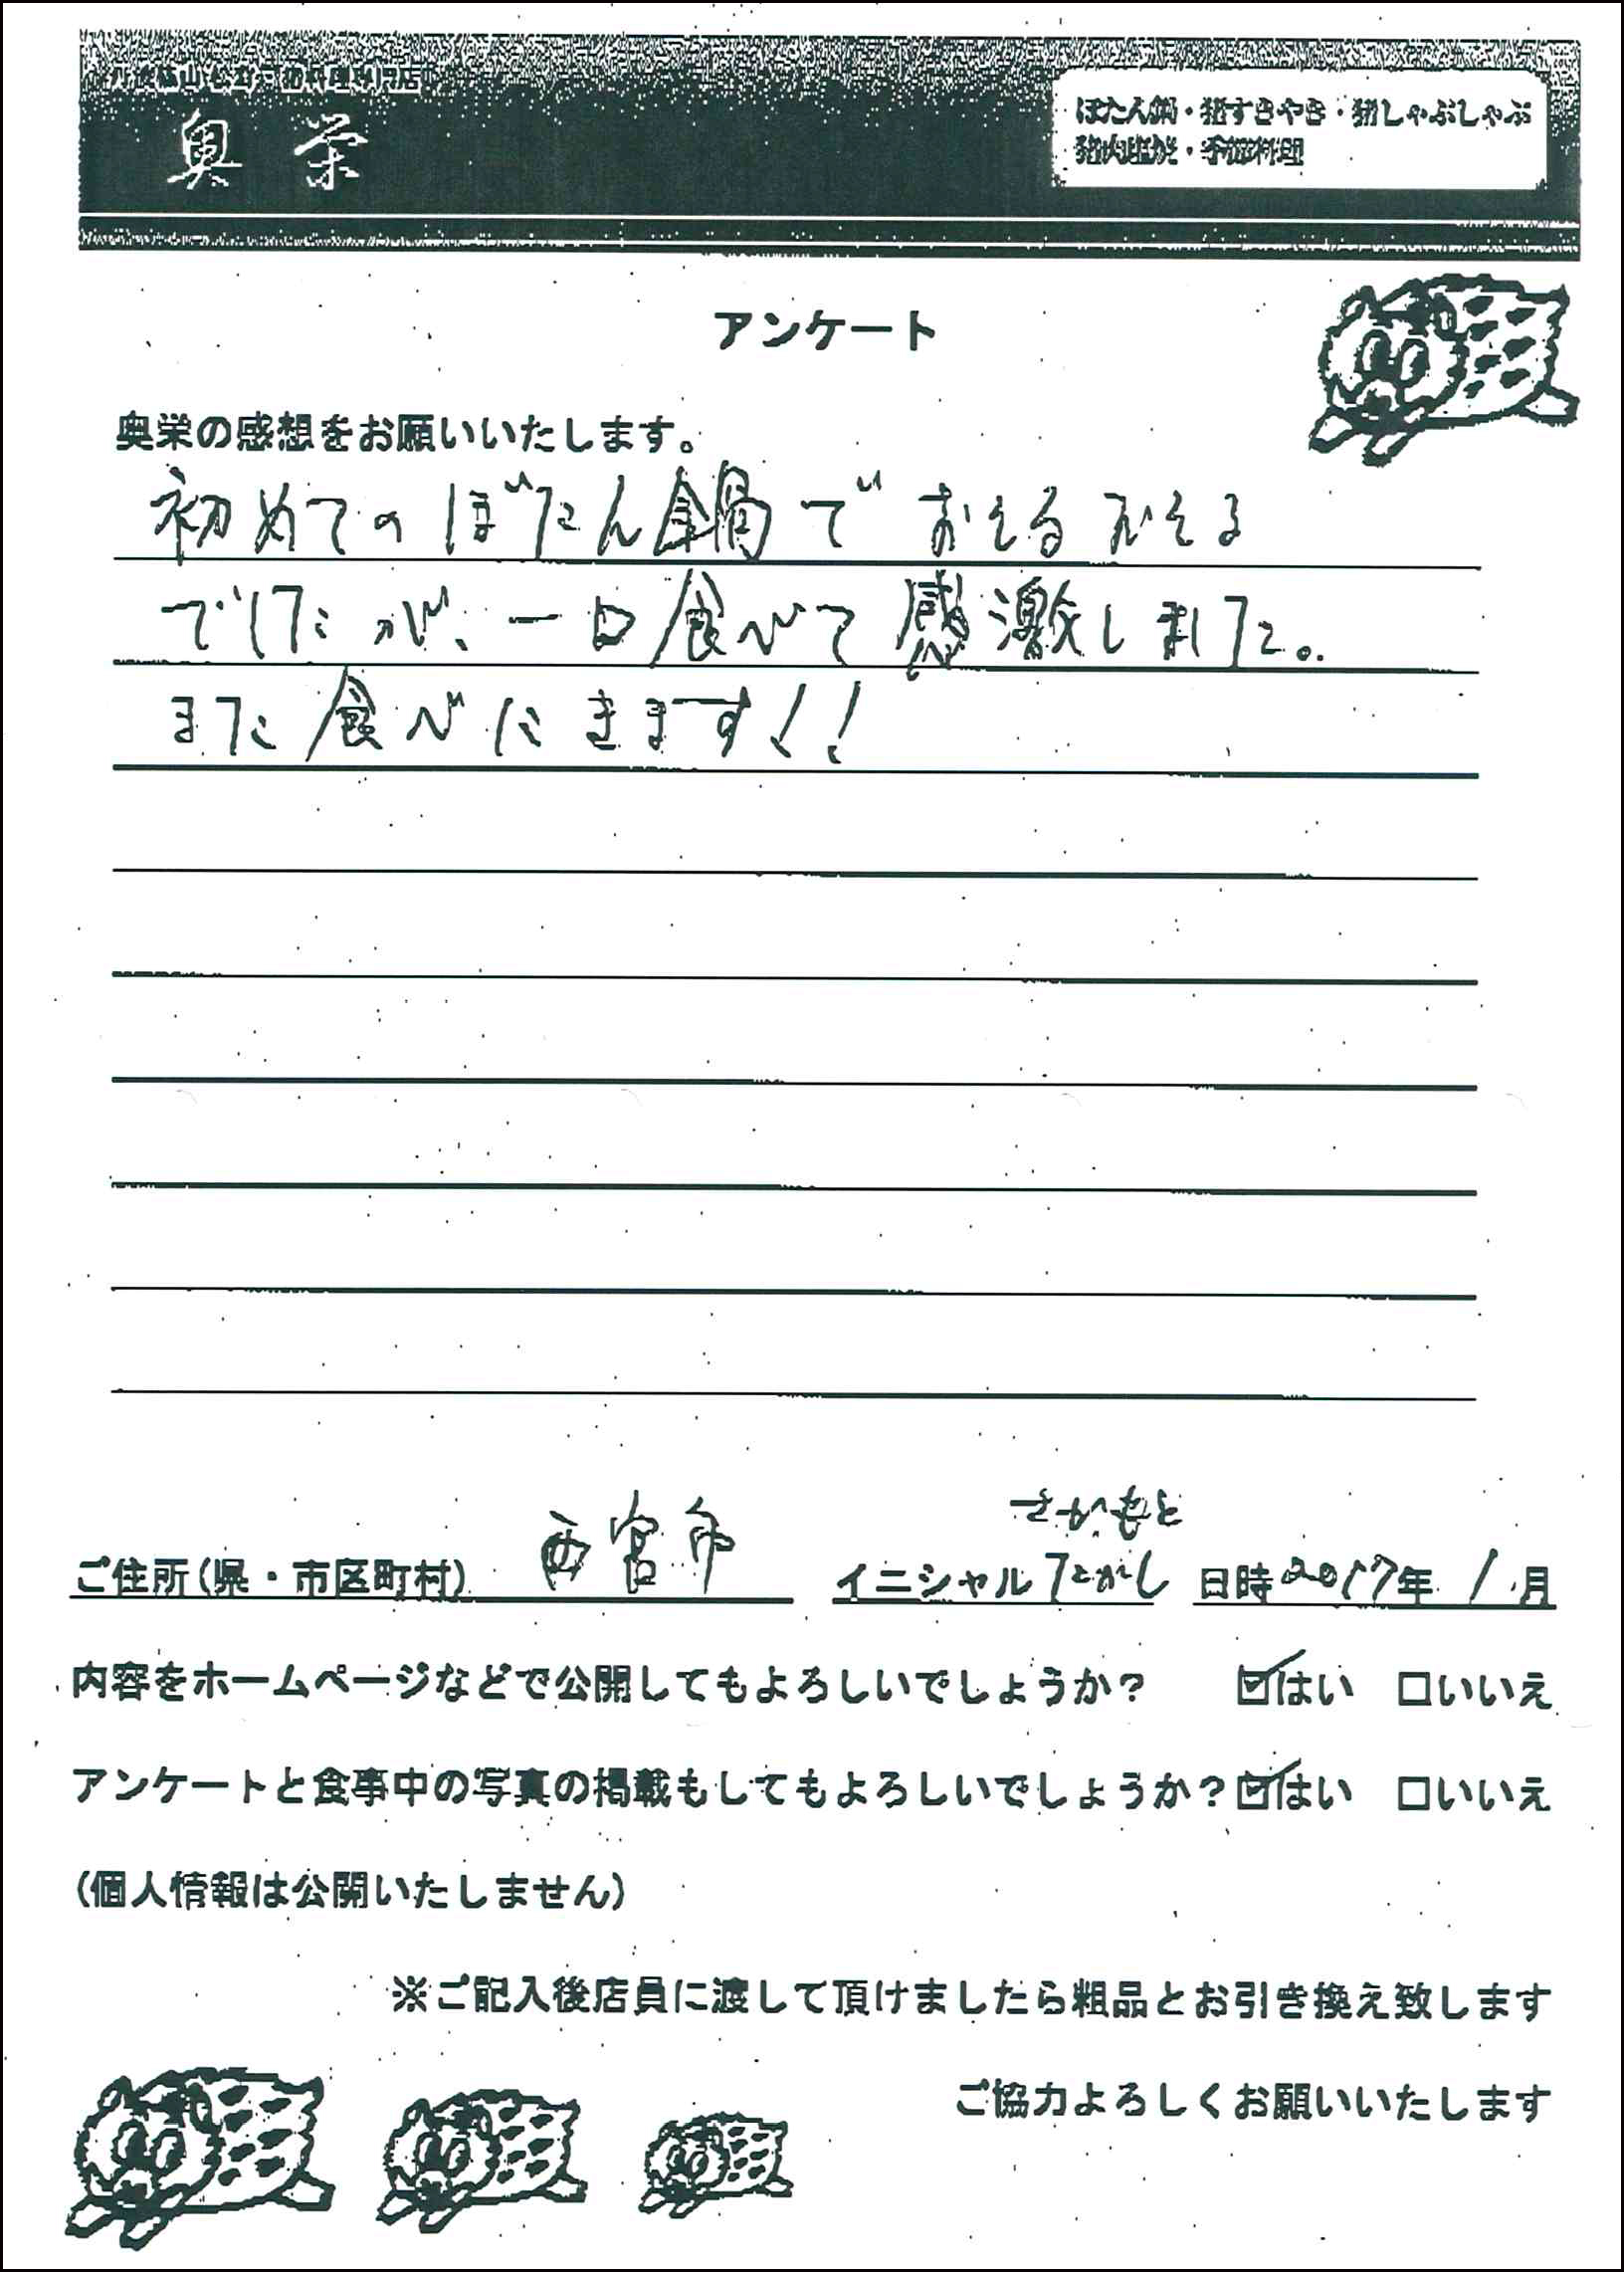 奥栄
ぼたん鍋・猪すきやき・猪しゃぶしゃぶ
猪肉塩焼・季節料理
アンケート
奥栄の感想をお願いいたします。
初めてのぼたん鍋でおそるおそる
でしたが、一口食べて感激しました。
また食べにきます!!
さかもと
ご住所(県・市区町村) 西宮市 イニシャル たかし 日時2017年 1月
内容をホームページなどで公開してもよろしいでしょうか? ☑はい □いいえ
アンケートと食事中の写真の掲載もしてもよろしいでしょうか?☑はい □いいえ
(個人情報は公開いたしません)
※ご記入後店員に渡して頂けましたら粗品とお引き換え致します
ご協力よろしくお願いいたします